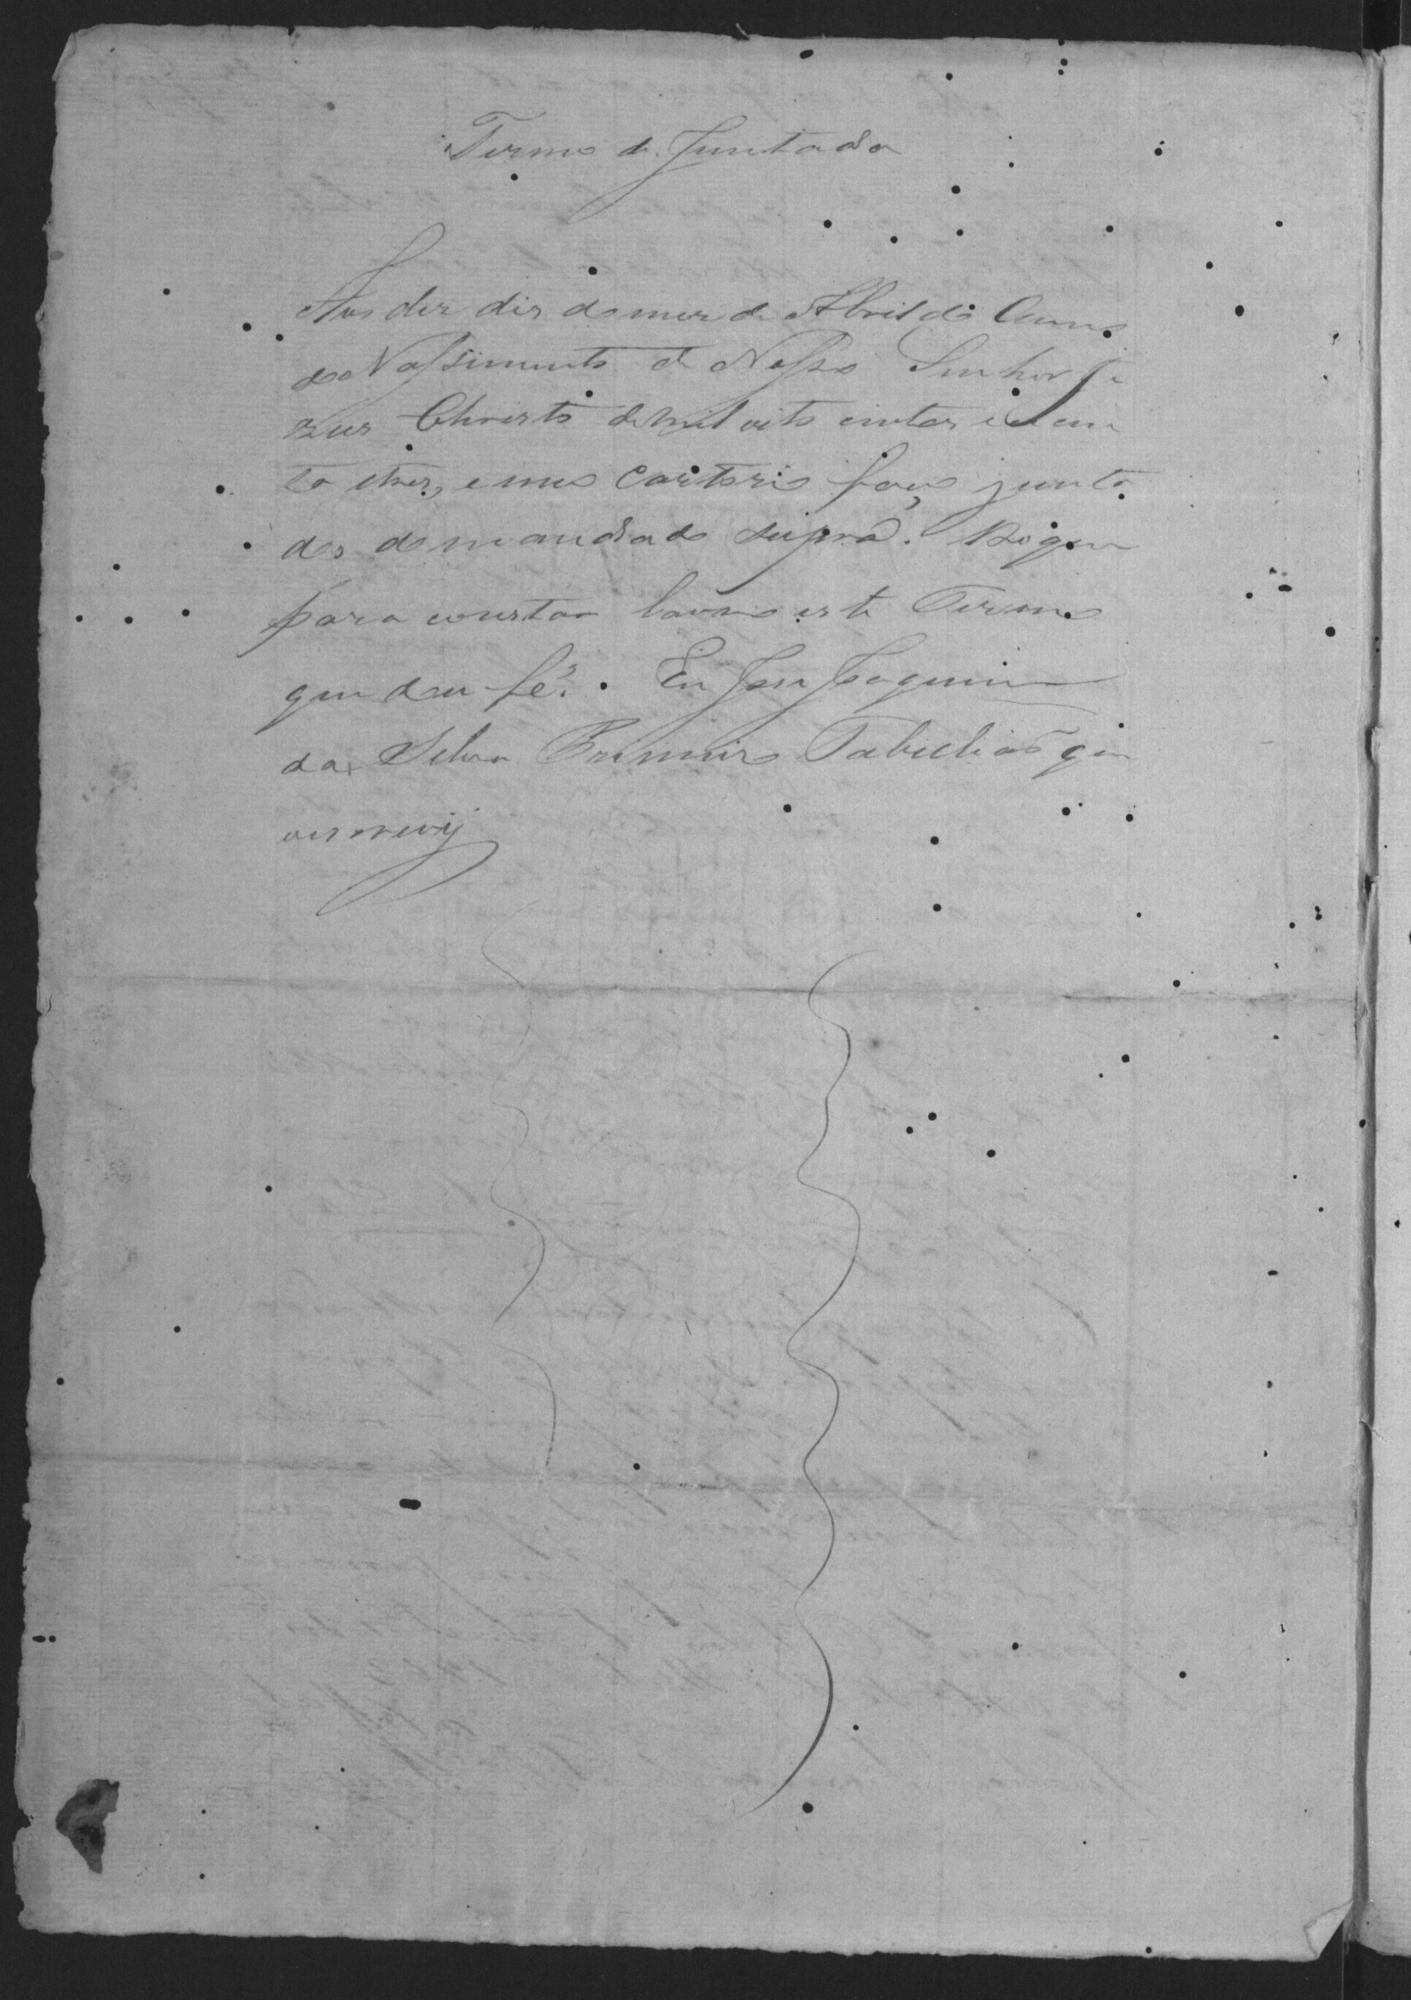 Termo de Juntada
Aos dez dias do mez de Abril do Anno
do Nassimento de Nosso Senhor Je
zus Christo de mil oito centos e
ta e tres, e meu Cartorio faço junta
da do mandado supra. Do que
para constar lavro este Termo
que dou fé. Eu José Joaquim
da Silva Primeiro Tabelião que
escrevij